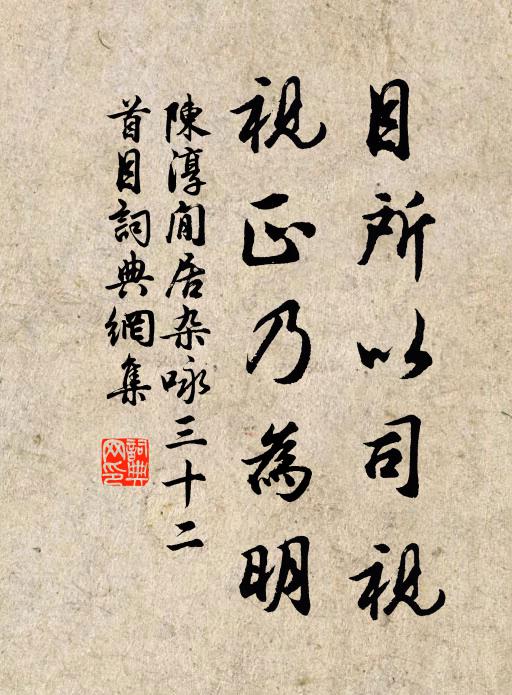 目所以司視
視正乃為明
陳淳閒居杂咏三十二
首目詞典網集
詞典
网印